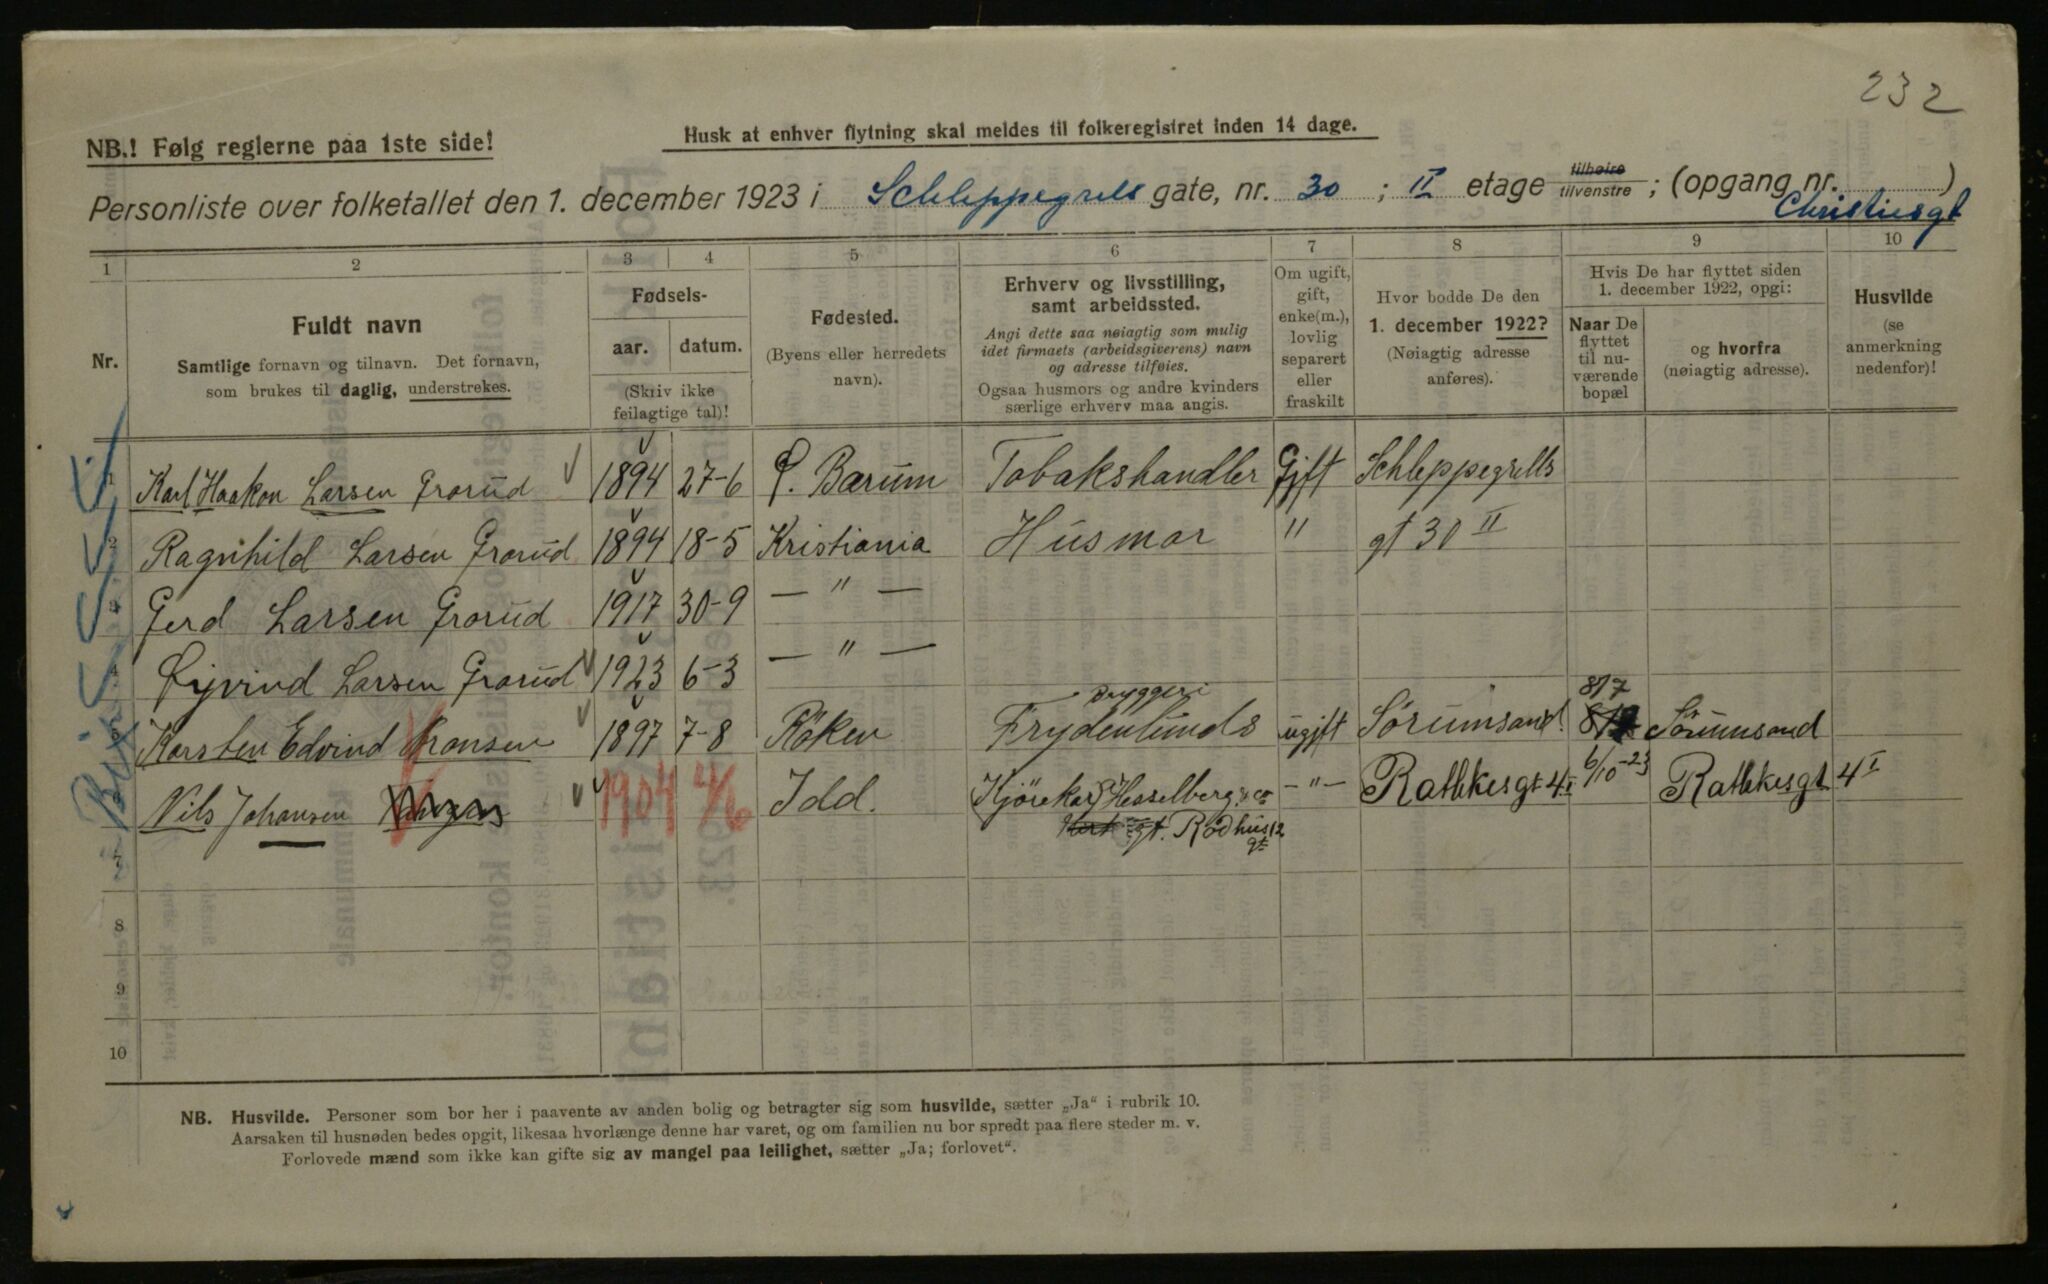 232
NB.! Følg reglerne paa 1ste side!
Husk at enhver flytning skal meldes til folkeregistret inden 14 dage.
Personliste over folketallet den 1. december 1923 i Schleppegrels gate, nr. 30 ; II etage tilhøire tilvenstre ; (opgang nr. )
Christiesgt
1 2 3 4 5 6 7 8 9 10
Nr.
Fuldt navn
Samtlige fornavn og tilnavn. Det fornavn,
som brukes til daglig, understrekes.
Fødsels-
aar. datum.
(Skriv ikke
feilagtige tal)!
Fødested.
(Byens eller herredets
navn).
Erhverv og livsstilling,
samt arbeidssted.
Angi dette saa nøiagtig som mulig
idet firmaets (arbeidsgiverens) navn
og adresse tilføies.
Ogsaa husmors og andre kvinders
særlige erhverv maa angis.
Om ugift,
gift,
enke(m.),
lovlig
separert
eller
fraskilt
Hvor bodde De den
1. december 1922?
(Nøiagtig adresse
anføres).
Hvis De har flyttet siden
1. december 1922, opgi:
Naar De
flyttet
til nu-
værende
bopæl
og hvorfra
(nøiagtig adresse).
Husvilde
(se
anmerkning
nedenfor)!
1 Karl Haakon Larsen Grorud 1894 27-6 Ø. Bærum Tobakshandler Gift Schleppegrells
2 Ragnhild Larsen Grorud 1894 18-5 Kristiania Husmor " gt 30 II
3 Gerd Larsen Grorud 1917 30-9 — " —
4 Øyvind Larsen Grorud 1923 6-3 — " —
Bryggeri 8/7
Karsten Edvind Aronsen 1897 7-8 Röken Frydenlunds ugift Sørumsand. Sörumsand
Nils Johansen 1904 Idd. Kjörekar Hesselberg & co -"- Rathkesgt 4 I 6/10-23 Rathkesgt 4 I
gt. Rödhus 12
gt
7
8
9
10
NB. Husvilde. Personer som bor her i paavente av anden bolig og betragter sig som husvilde, sætter „Ja“ i rubrik 10.
Aarsaken til husnøden bedes opgit, likesaa hvorlænge denne har varet, og om familien nu bor spredt paa flere steder m. v.
Forlovede mænd som ikke kan gifte sig av mangel paa leilighet, sætter „Ja; forlovet“.